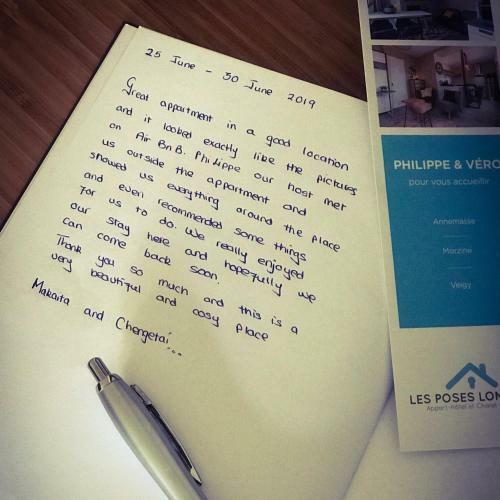 25 June - 30 June 2019
Great appartment in a good location
and it looked exactly like the pictures
on Air BnB. Philippe our host met
us outside the appartment and
showed us everything around the place
and even recommended some things
for us to do. We really enjoyed
our stay here and hopefully we
can come back soon.
Thank you so much and this is a
very beautiful and cosy place
Makaita and Chengetai...
PHILIPPE & VÉRO
pour vous accueillir
Annemasse
Morzine
Veigy
LES POSES LON
Appart-Hôtel et Chalet